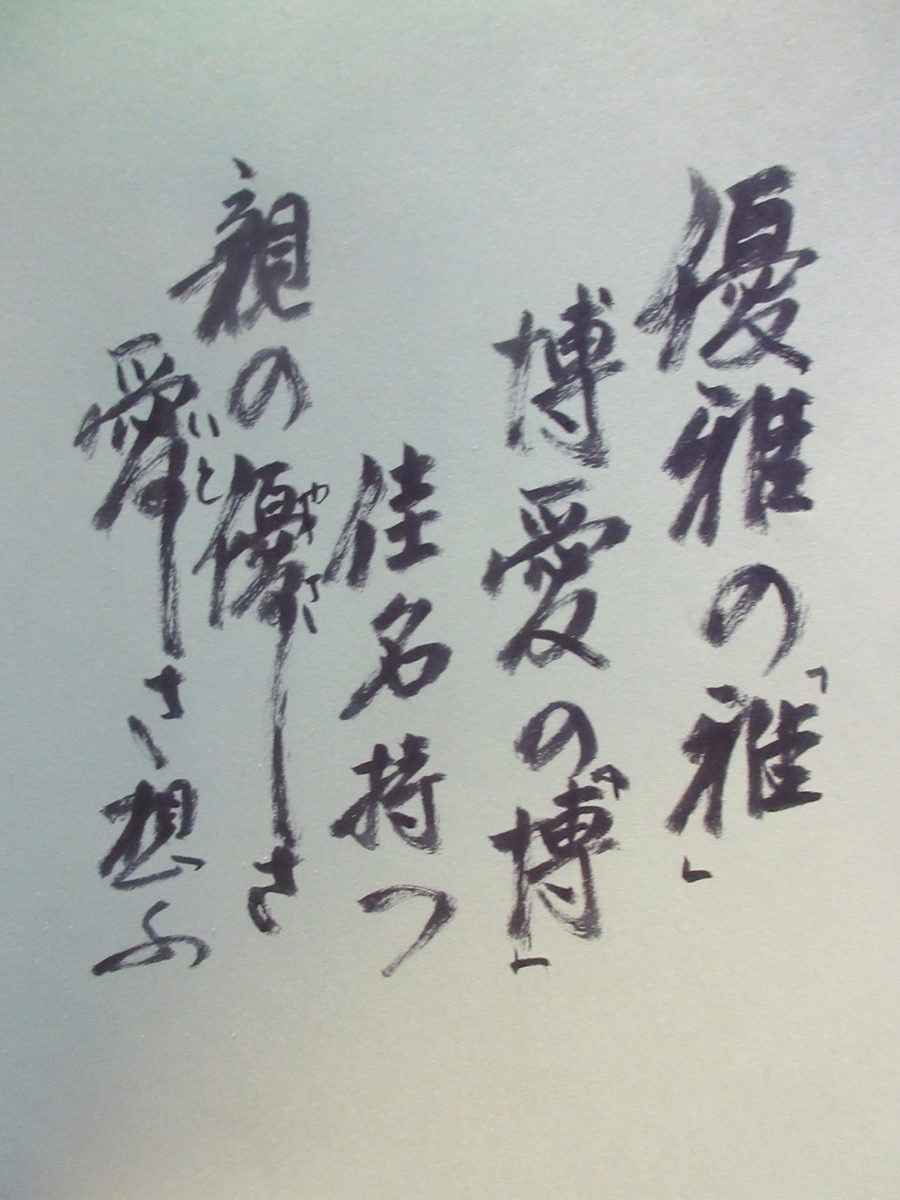 優雅の「雅」
博愛の「博」
佳名持つ
親の優しさ
愛しさ想ふ
やさ
いと